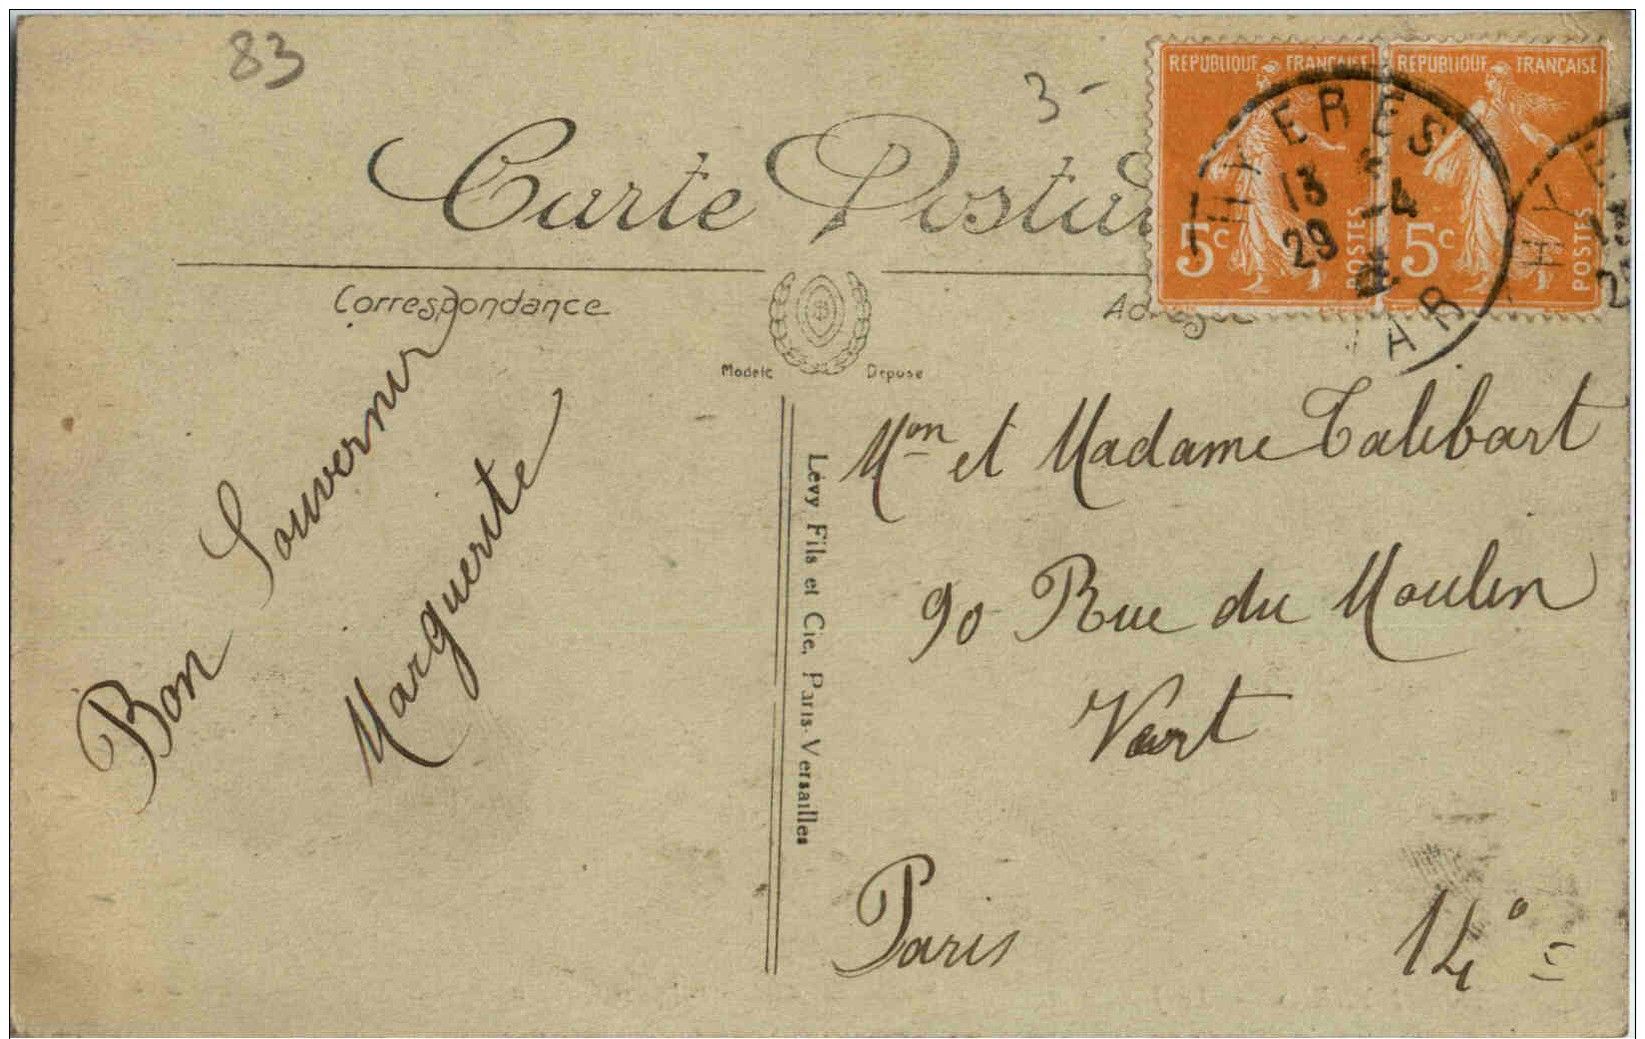 83
3-
REPUBLIQUE FRANÇAISE
5c
POSTES
REPUBLIQUE FRANÇAISE
5c
POSTES
HYERES
13
-4
29
VAR
HYE
Carte Posta
Correspondance
Modèle Déposé
Bon Souvenir
Marguerite
Lévy Fils et Cie, Paris-Versailles
Mon et Madame Talibart
90 Rue du Moulin
Vert
Paris 14°